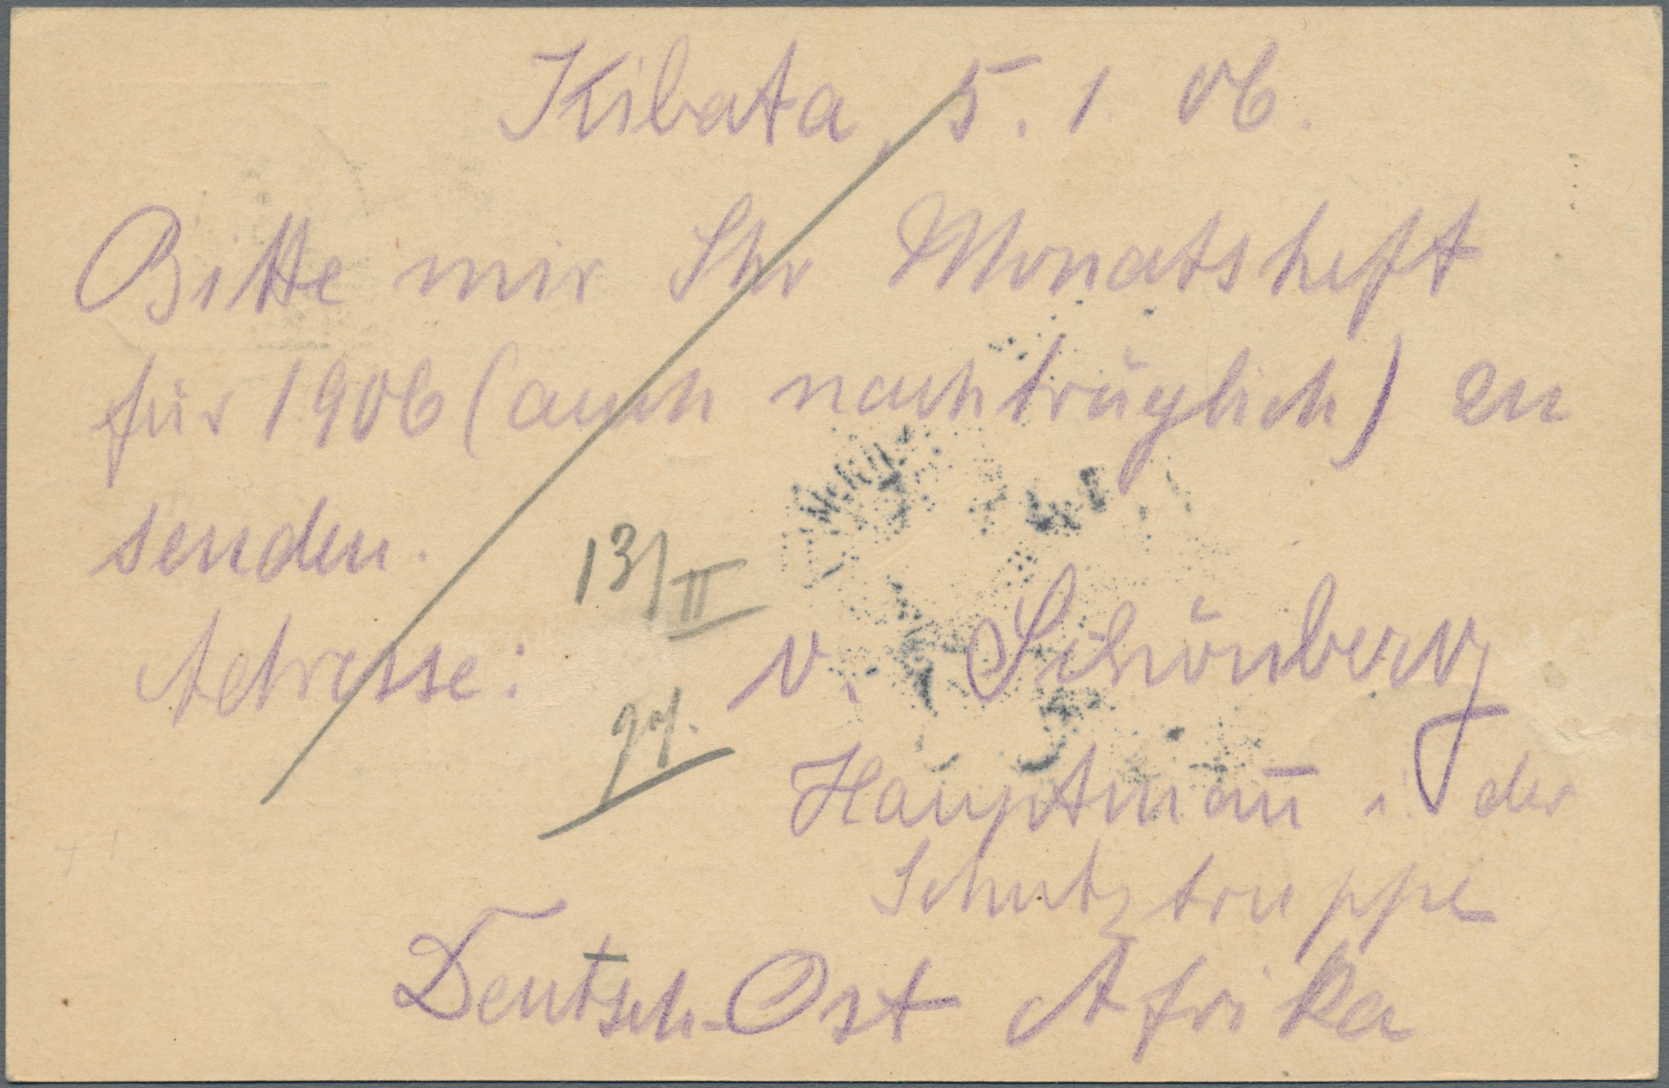 Kibata, 5. 1. 06.
Bitte mir Ihr Monatsheft
für 1906 (auch nachträglich) zu
senden.
13/II
Adresse: v. Schönberg
Hauptmañ i. der
Schutztruppe
Deutsch-Ost Afrika